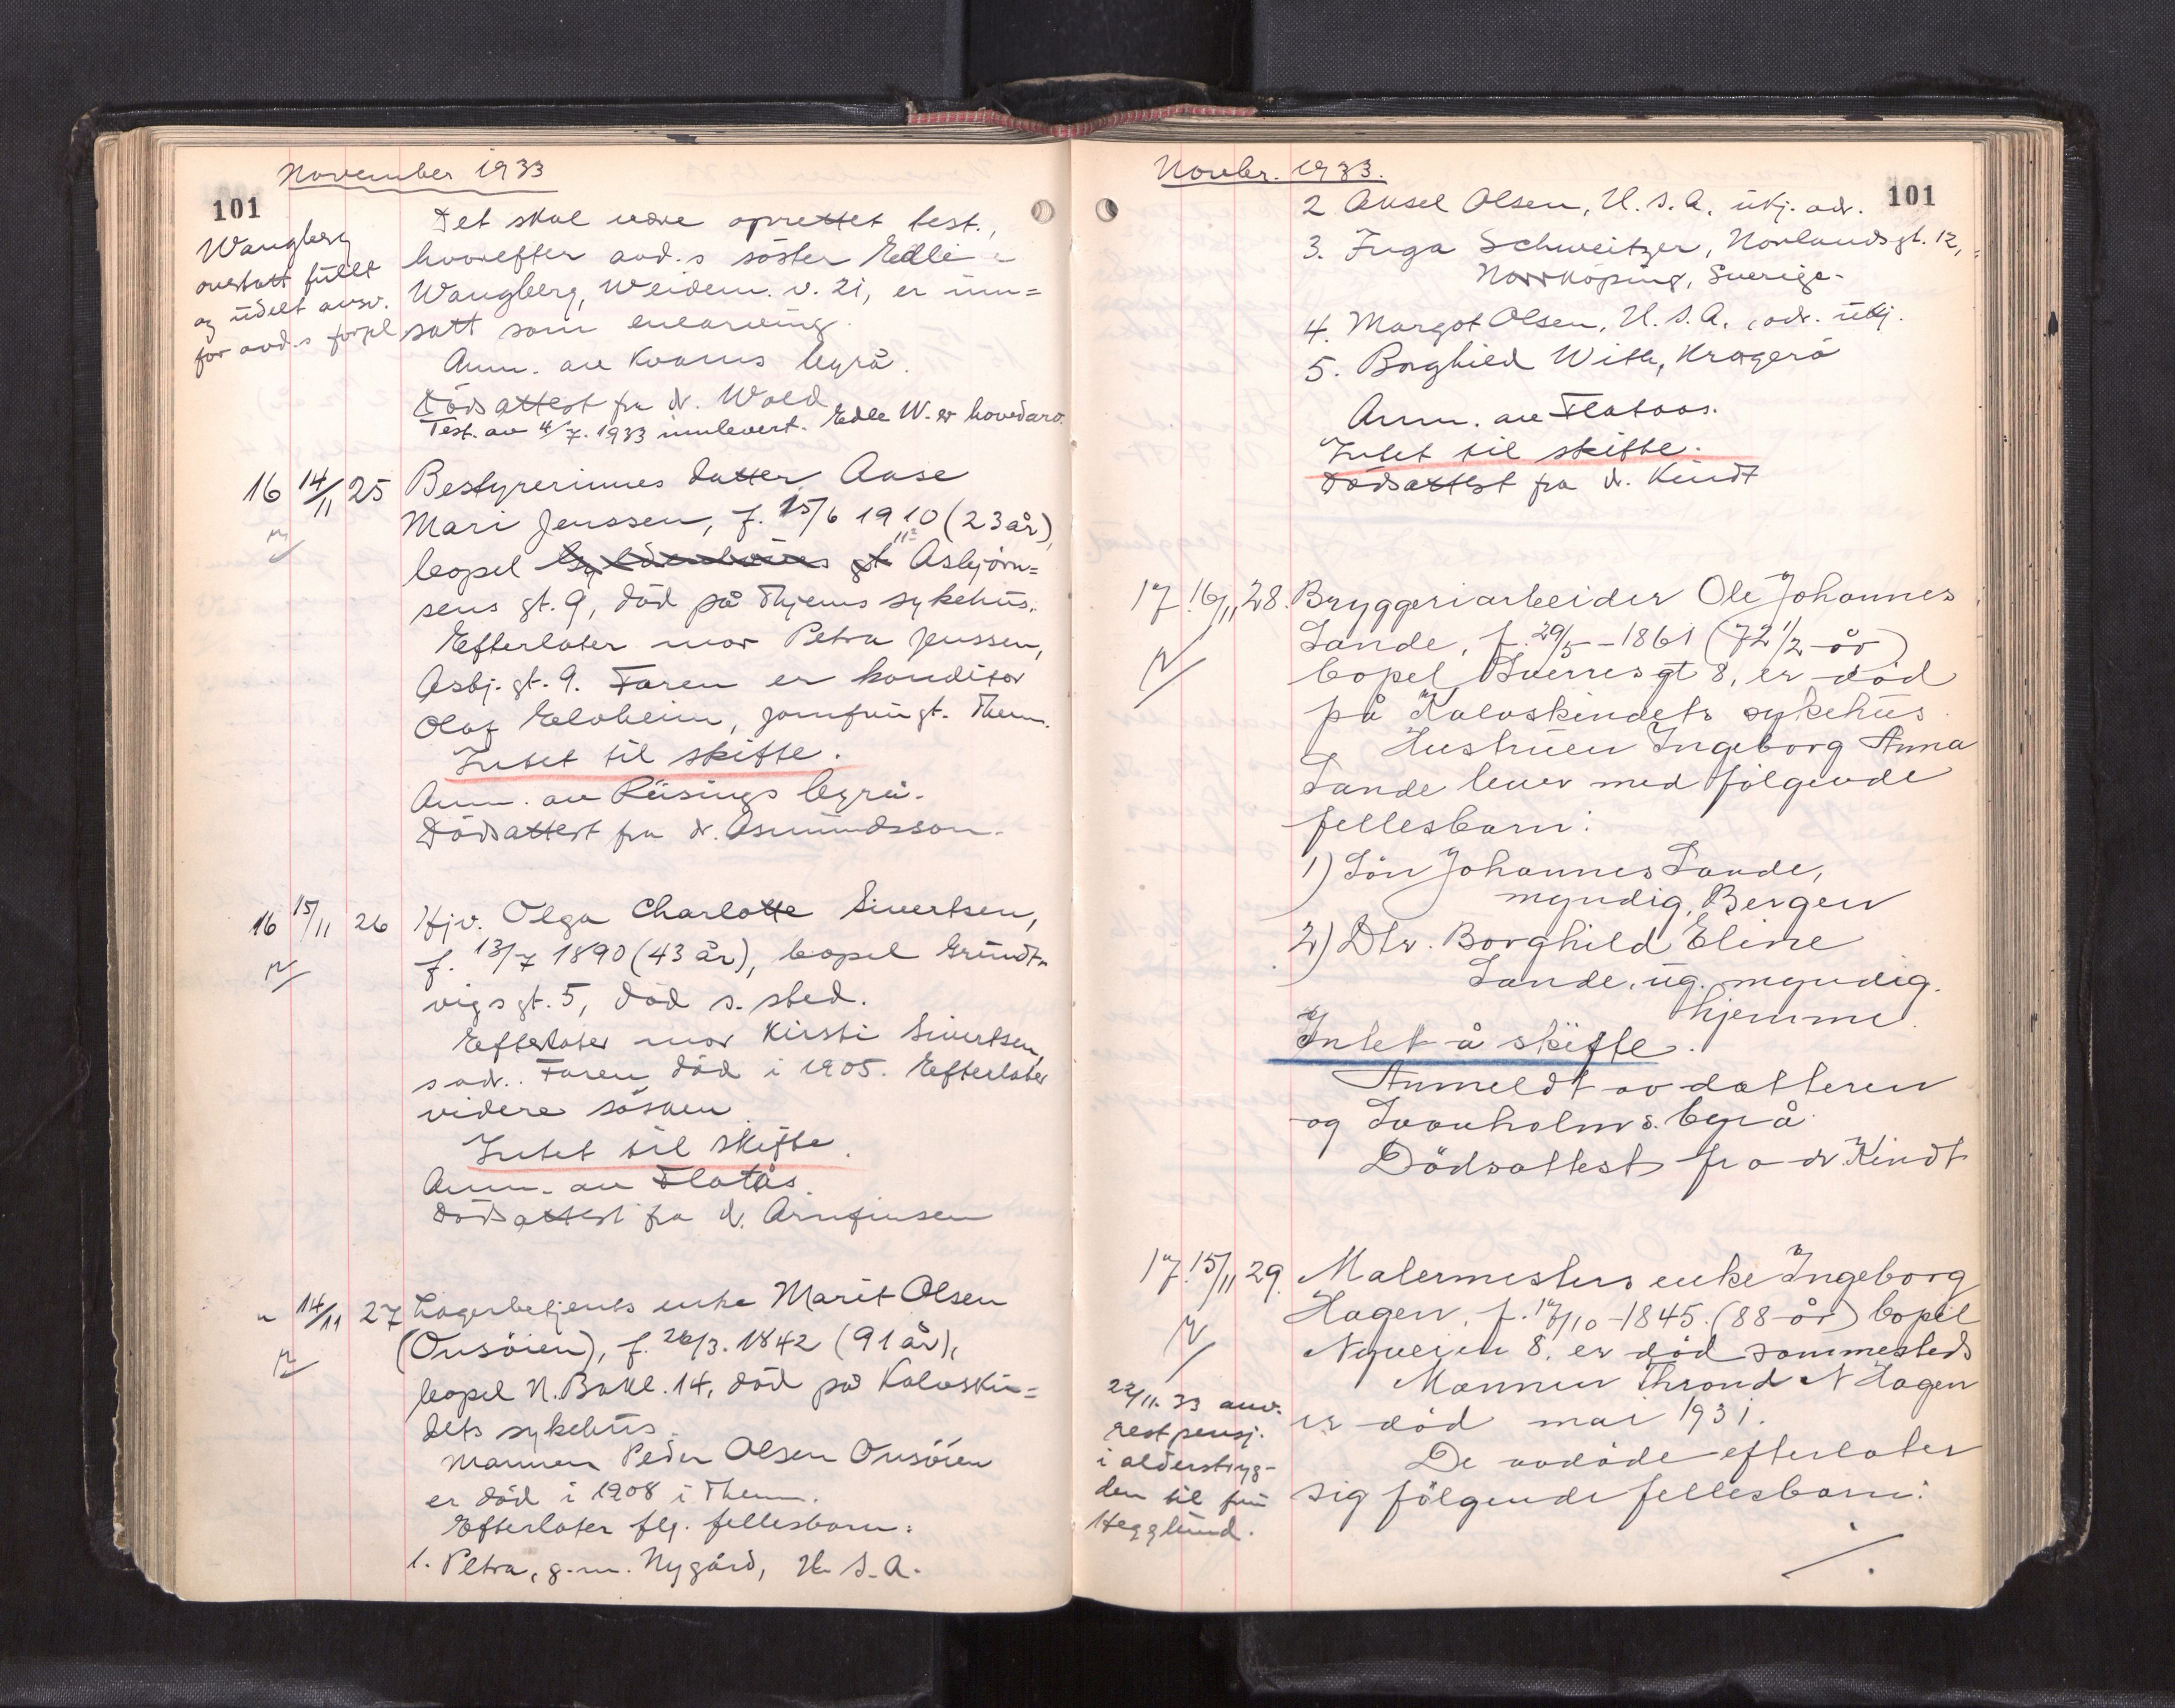 November 1933
101
Wangberg
overtatt fullt
og udelt ansv.
for avd.s forpl.
Det skal være oprettet test.,
hvorefter avd.s söster Edle
Wangberg, Weidem. v. 21, er inn=
satt som enearving.
Anm. av Kvams byrå.
Dödsattest fra dr. Wold
Test. av 4/7. 1933 innlevert. Edle W. er hovedarv.
16 14/11 25 Bestyrerinnes datter Aase
Mari Jenssen, f. 15/6 1910 (23 år),
bopel Asbjörn=
sens gt. 9, död på Thjems sykehus.
Efterlater mor Petra Jenssen,
Asbj. gt. 9. Faren er konditor
Olaf Elvheim, Jomfrugt. Thjem.
Intet til skifte.
Anm. av Riisings byrå.
Dödsattest fra dr. Asmundsson.
16 15/11 26 Hjv. Olga Charlotte Sivertsen,
f. 13/7 1890 (43 år), bopel Grundt-
vigs gt. 5, död s. sted.
Efterlater mor Kirsti Sivertsen,
s adr.. Faren död i 1905. Efterlater
videre sösken.
Intet til skifte.
Anm. av Flatås.
Dödsattest fra dr. Arnfinsen
" 14/11 27 Lagerbetjents enke Marit Olsen
(Onsöien), f. 26/3. 1842 (91 år),
bopel N. Bakl. 14, död på Kalvskin=
dets sykehus.
Mannen Peder Olsen Onsöien
er död i 1908 i Thjem.
Efterlater flg. fellesbarn:
1. Petra, g.m. Nygård, U.S.A.
Novbr. 1933.
101
2 Aksel Olsen, U.S.A. ukj. adr.
3. Inga Schweitzer, Norlandsgt. 12,
Norrköping, Sverige.
4. Margot Olsen, U.S.A., adr. ukj.
5. Borghild With, Kragerö
Anm. av Flataas.
Intet til skifte.
Dödsattest fra dr. Kindt
17. 16/11 28. Bryggeriarbeider Ole Johannes
Sande, f. 29/5 - 1861 (72 1/2 år)
bopel Sverresgt 8, er död
på Kalvskindets sykehus.
Hustruen Ingeborg Anna
Sande lever med fölgende
fellesbarn:
1) Sön Johannes Sande,
myndig, Bergen
2) Dtr. Borghild Eline
Sande, ug. myndig.
hjemme.
Intet å skifte.
Anmeldt av datteren
og Svanholms. byrå.
Dödsattest fra dr. Kindt
17. 15/11 29. Malermesters enke Ingeborg
Hagen, f. 17/10 - 1845. (88 år) bopel
Nyveien 8, er död sammesteds
Mannen Thrond N Hagen
er död mai 1931.
De avdöde efterlater
sig fölgende fellesbarn:
./.
22/11. 33 anv.
restpensj.
i alderstryg-
den til fru
Hegglund.